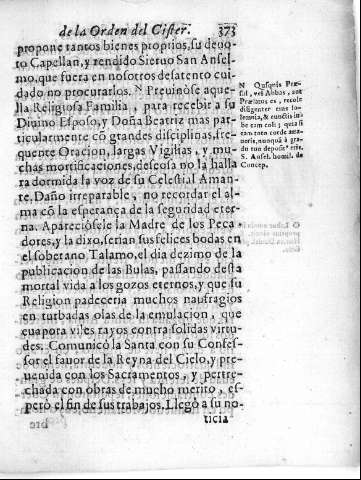 de la Orden del Cister. 373
propone tantos bienes propios, su deuo-
to Capellan, y rendido Sieruo San Ansel-
mo, que fuera en nosotros desatento cui-
dado no procurarlos. N Preuinòse aque-
lla Religiosa Familia, para recibir a su
Diuino Esposo, y Doña Beatriz mas par-
ticularmente cō grandes disciplinas, fre-
quente Oracion, largas Vigilias, y mu-
chas mortificaciones, deseosa no la halla
ra dormida la voz de su Celestial Aman-
te. Daño irreparable, no recordar el al-
ma cō la esperança de la seguridad eter-
na. Apareciòsele la Madre de los Peca-
dores, y la dixo, serian sus felices bodas en
el soberano Talamo, el dia dezimo de la
publicacion de las Bulas, passando desta
mortal vida a los gozos eternos, y que su
Religion padeceria muchos naufragios
en turbadas olas de la emulacion, que
euapora viles rayos contra solidas virtu-
des. Comunicò la Santa con su Confes-
sor el fauor de la Reyna del Cielo, y pre-
uenida con los Sacramentos, y pertre-
chada con obras de mucho merito, es-
però el fin de sus trabajos. Llegò a su no-
ticia
N Quisquis Præ-
sul, vel Abbas, aut
Prælatus es, recole
diligenter tam so-
lemnia, & cunctis iu-
be tam coli; quia si
eam toto corde ama-
ueris, nunquā à gra-
du tuo deponeris.
S. Ansel. homil. de
Concep.